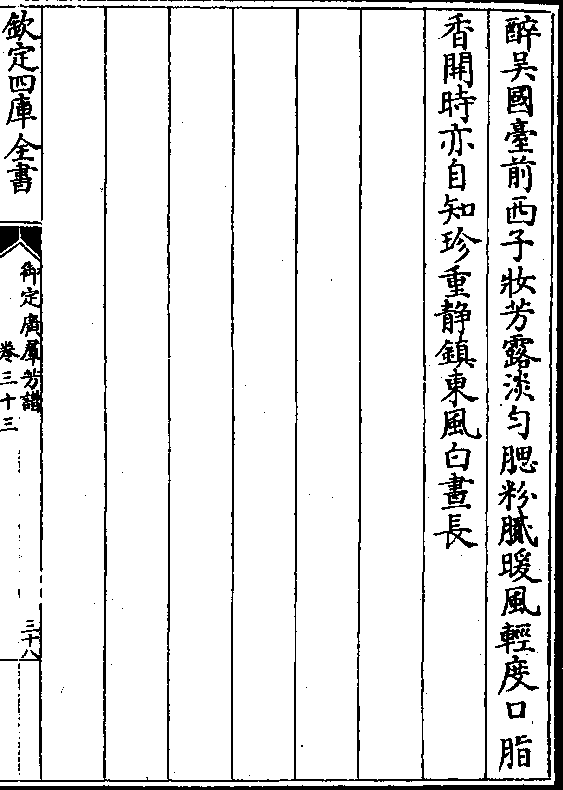 醉吳國臺前西子妝芳露淡勻腮粉膩暖風輕度口脂
香開時亦自知珍重静鎮東風白晝長
欽定四庫全書
御定廣羣芳譜
卷三十三
三十八